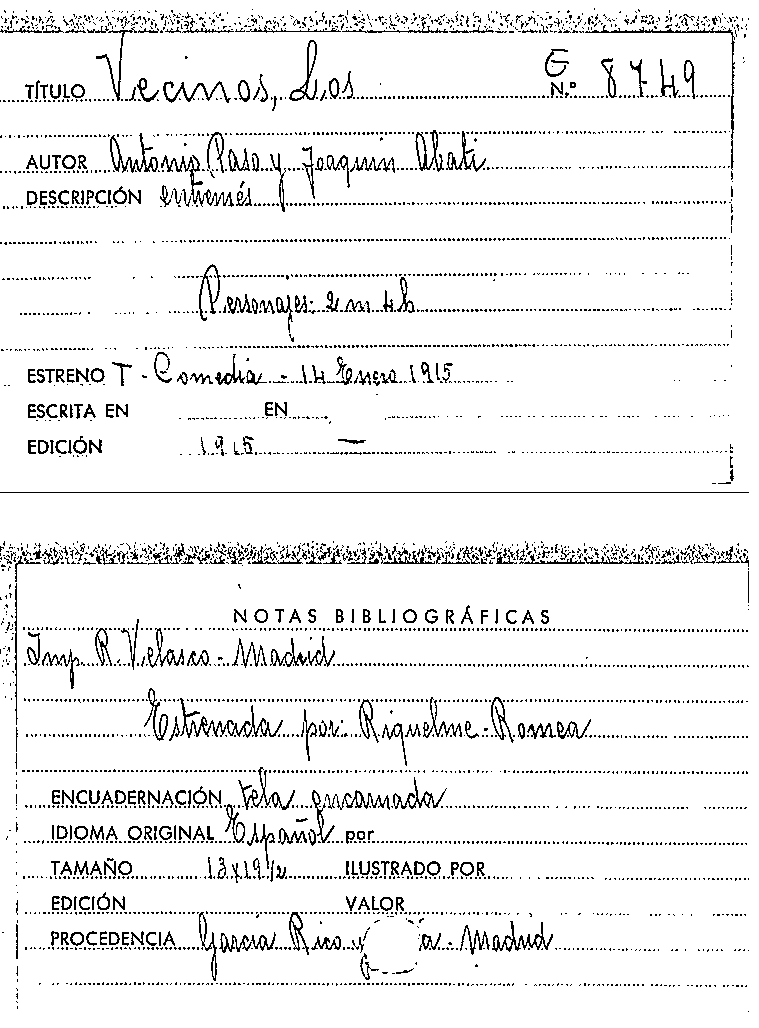 TÍTULO Vecinos, Los G N.º 8749
AUTOR Antonio Paso y Joaquin Abati
DESCRIPCIÓN entremés
Personajes: 2 m 4 h
ESTRENO T - Comedia - 14 Enero 1915
ESCRITA EN EN
EDICIÓN 1915 —
NOTAS BIBLIOGRÁFICAS
Imp. R. Velasco - Madrid
Estrenada por: Riquelme - Romea
ENCUADERNACIÓN tela encarnada
IDIOMA ORIGINAL Español por
TAMAÑO 13x19 1/2 ILUSTRADO POR
EDICIÓN VALOR
PROCEDENCIA García Rico y - Madrid